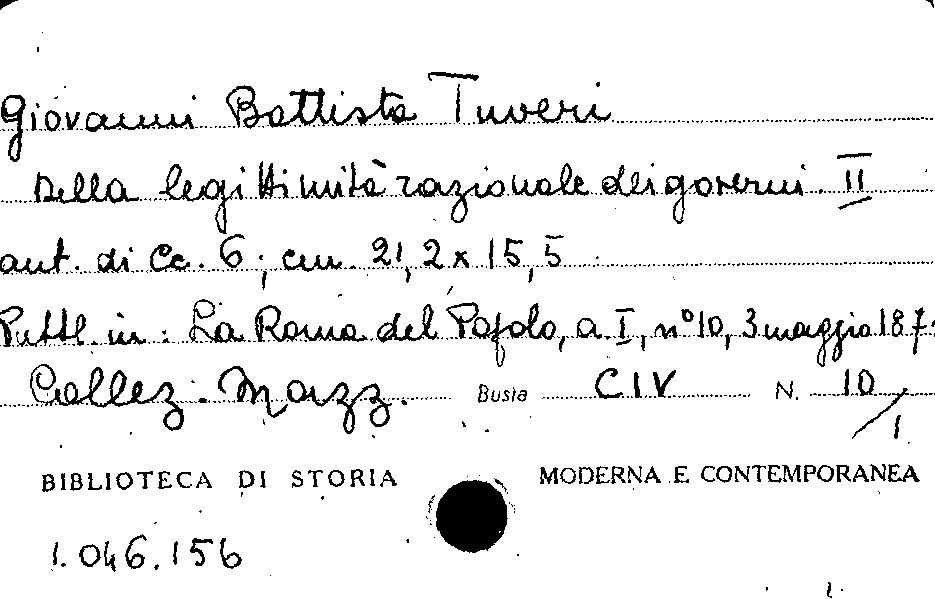 Giovanni Battista Tuveri
Della legittimità razionale dei governi. II
aut. di Cc. 6; cm 21,2 x 15,5
Pubbl. in: La Roma del Popolo, a. I, n° 10, 3 maggio 187
Collez. Mazz. Busta CIV N. 10/1
BIBLIOTECA DI STORIA MODERNA E CONTEMPORANEA
1.046.156